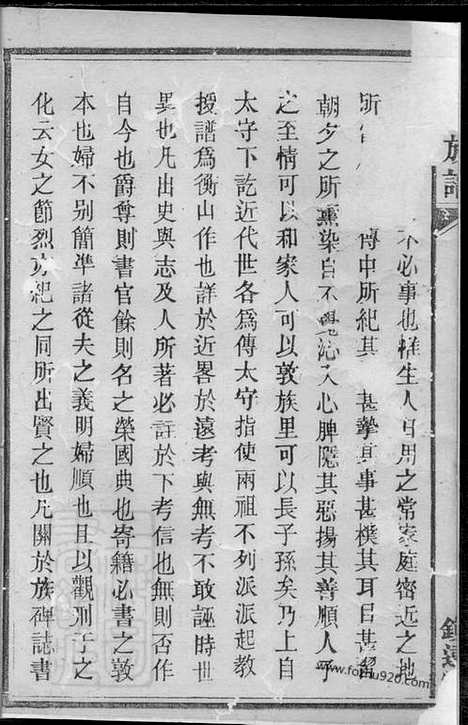 族譜
不必事也雖生人日用之常家庭密近之地
傳中所紀其 甚摯其事甚樸其耳目甚習
朝夕之所熏染自不覺沁人心脾隱其惡揚其善順人子
之至情可以和家人可以敦族里可以長子孫矣乃上自
太守下訖近代世各為傳太守指使兩祖不列派派起教
授譜為衡山作也詳於近畧於遠考與無考不敢誣時世
異也凡出史與志及人所著必註於下考信也無則否作
自今也爵尊則書官餘則名之榮國典也寄籍必書之敦
本也婦不别簡準諸從夫之義明婦順也且以觀刑于之
化云女之節烈亦紀之同所出賢之也凡關於族碑誌書
www.fojiu920.com